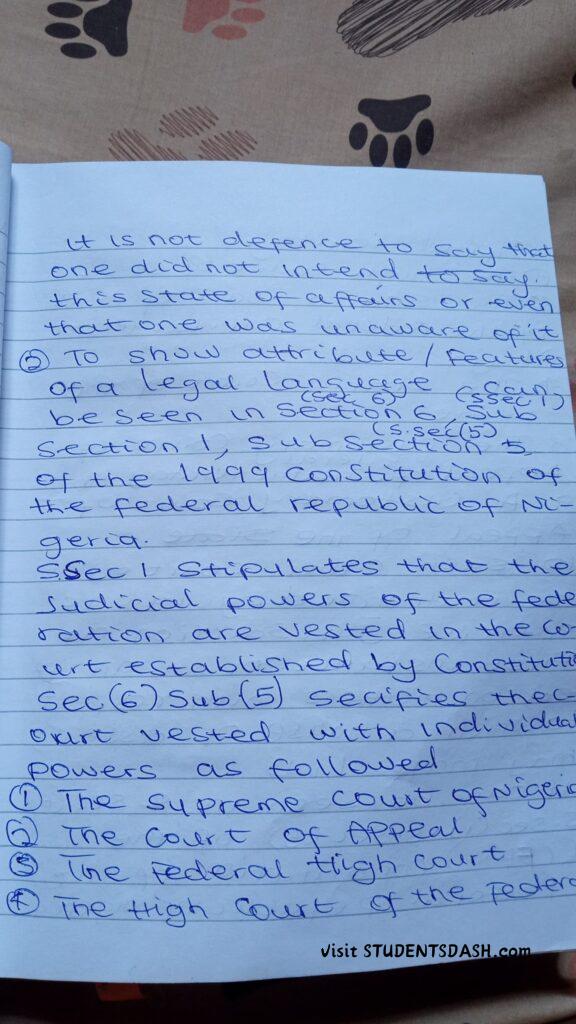 it is not defence to say that
one did not intend to say.
this state of affairs or even
that one was unaware of it
② To show attribute / features
of a legal language can
(sec 6) (ssec 1)
be seen in section 6, sub
(s.sec(5)
section 1, sub section 5
of the 1999 constitution of
the federal republic of Ni-
geria.
SSec 1 Stipulates that the
Judicial powers of the fede
ration are vested in the co-
urt established by Constituti
Sec(6) Sub(5) secifies the c-
ourt vested with individual
powers as followed
① The supreme court of Nigeria
② The court of Appeal
③ The Federal High court
④ The High Court of the Federa
visit STUDENTSDASH.com